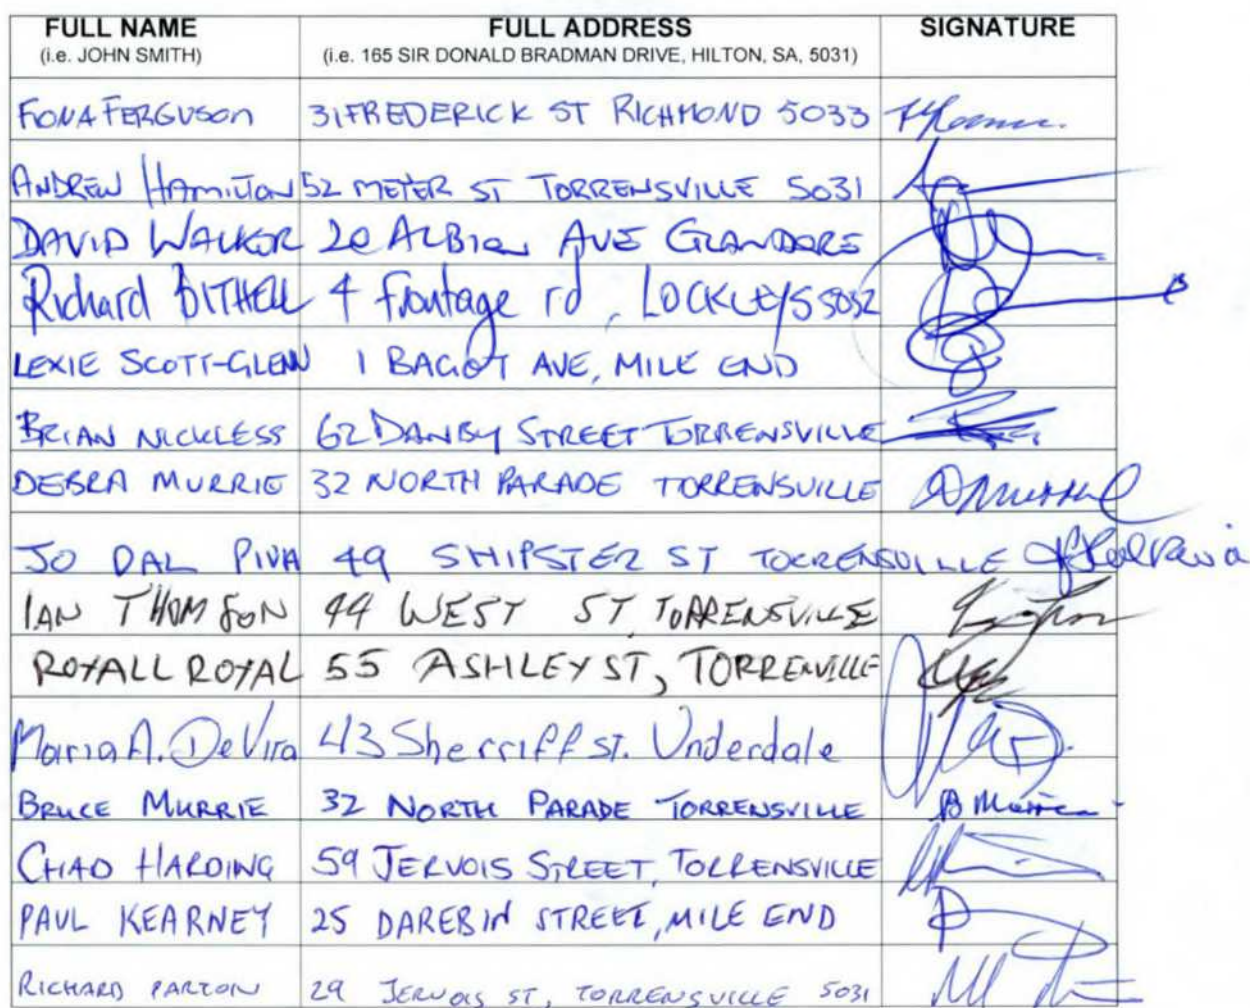 FULL NAME FULL ADDRESS SIGNATURE
(i.e. JOHN SMITH) (i.e. 165 SIR DONALD BRADMAN DRIVE, HILTON, SA, 5031)
FIONA FERGUSON 31 FREDERICK ST RICHMOND 5033
ANDREW HAMILTON 52 MEYER ST TORRENSVILLE 5031
DAVID WALKER 20 ALBION AVE GLANDORE
Richard BITHELL 4 Frontage rd, LOCKLEYS 5032
LEXIE SCOTT-GLENN 1 BAGOT AVE, MILE END
BRIAN NICKLESS 62 DANBY STREET TORRENSVILLE
DEBRA MURRIE 32 NORTH PARADE TORRENSVILLE
JO DAL PIVA 49 SHIPSTER ST TORRENSVILLE
IAN THOMSON 44 WEST ST TORRENSVILLE
ROYALL ROYAL 55 ASHLEY ST, TORRENVILLE
Maria A. De Vira 43 Sherriff st. Underdale
BRUCE MURRIE 32 NORTH PARADE TORRENSVILLE B Murrie
CHAD HARDING 59 JERVOIS STREET, TORRENSVILLE
PAUL KEARNEY 25 DAREBIN STREET, MILE END
RICHARD PARTON 29 JERVOIS ST, TORRENSVILLE 5031